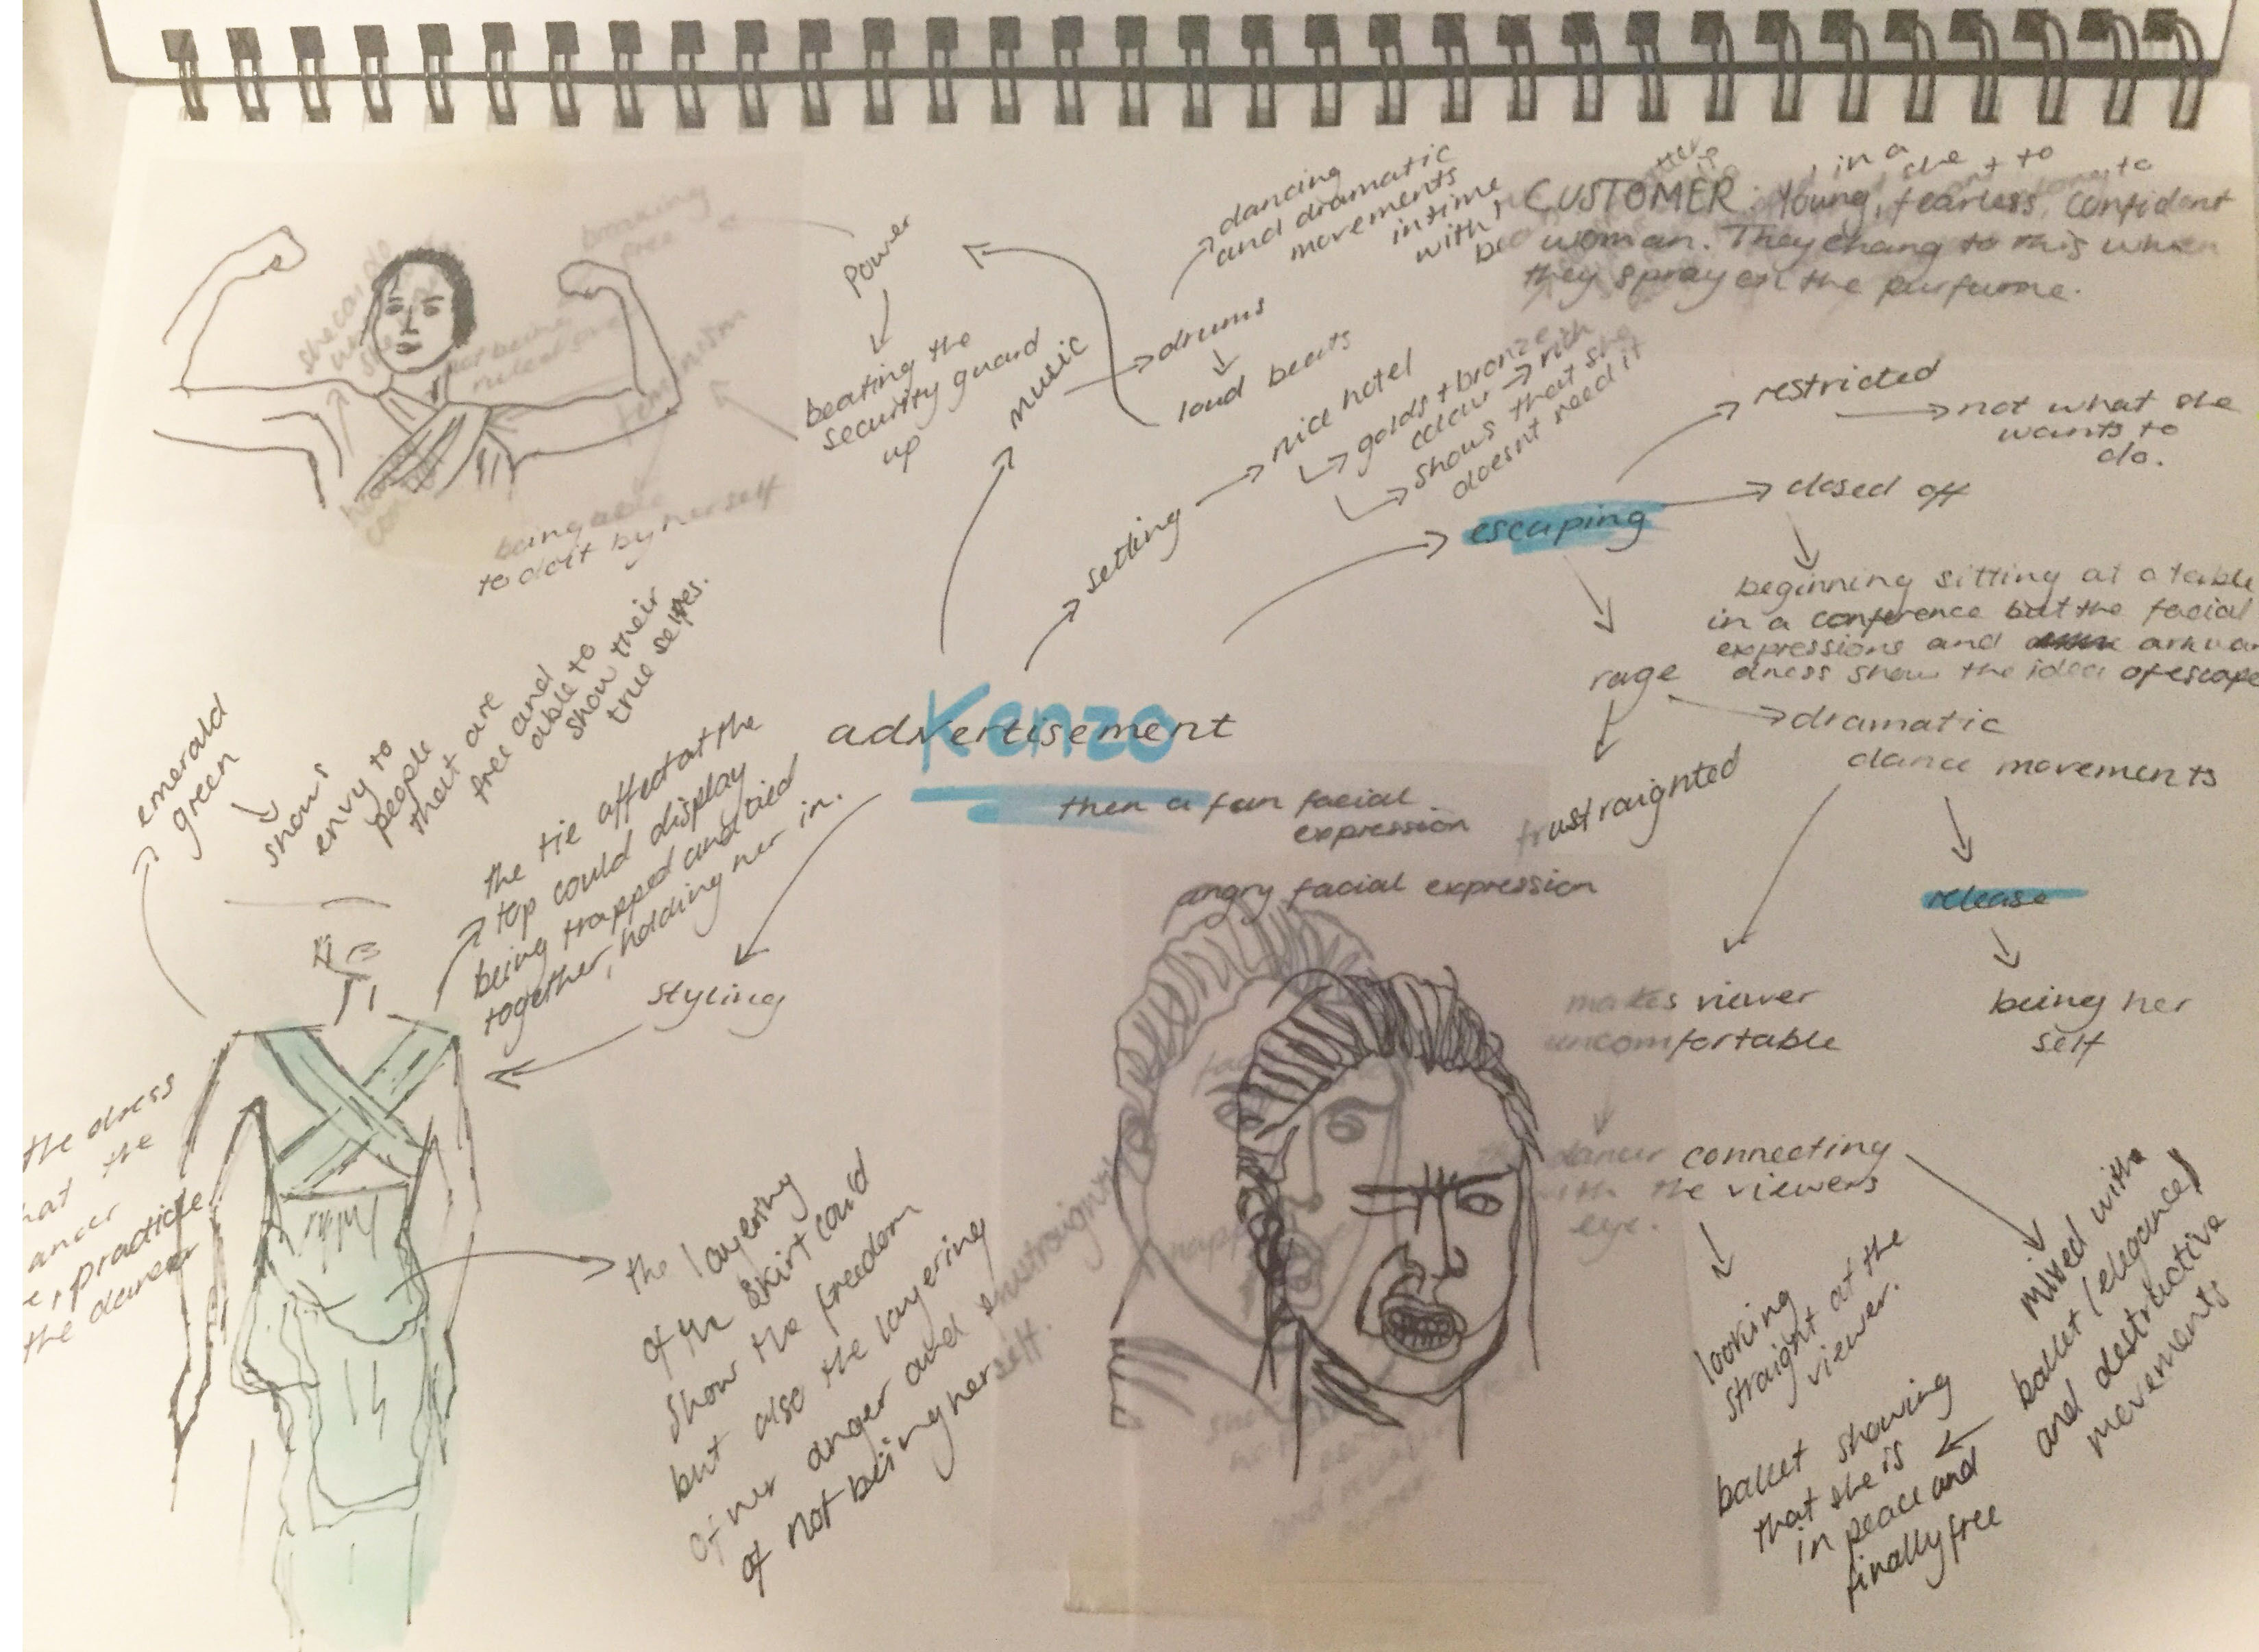 power
beating the
security guard
up
breaking
free
not being
ruled over
feminism
being able
to do it by herself
music
drums
loud beats
dancing
and dramatic
movements
in time
with
CUSTOMER: Young, fearless, confident
woman. They chang to this when
they spray on the purfume.
setting
nice hotel
golds + bronze
colour → rich
shows that she
doesnt need it
escaping
restricted
not what she
wants to
do.
closed off
beginning sitting at a table
in a conference but the facial
expressions and arkwar
dness show the idea of escape
rage
frustraighted
dramatic
dance movements
release
being her
self
makes viewer
uncomfortable
the dancer connecting
with the viewers
eye.
looking
straight at the
viewer.
mixed with
ballet (elegance)
and destructive
movements
ballet showing
that she is
in peace and
finally free
Kenzo
advertisement
then a fun facial
expression
angry facial expression
styling
emerald
green
shows
envy to
people
that are
free and
able to
show their
true selfes.
the tie affect at the
top could display
being trapped and tied
together, holding her in.
the layering
of the skirt could
show the freedom
but also the layering
of her anger and frustraight
of not being herself.
the dress
hat the
ancer
practice
the dancer